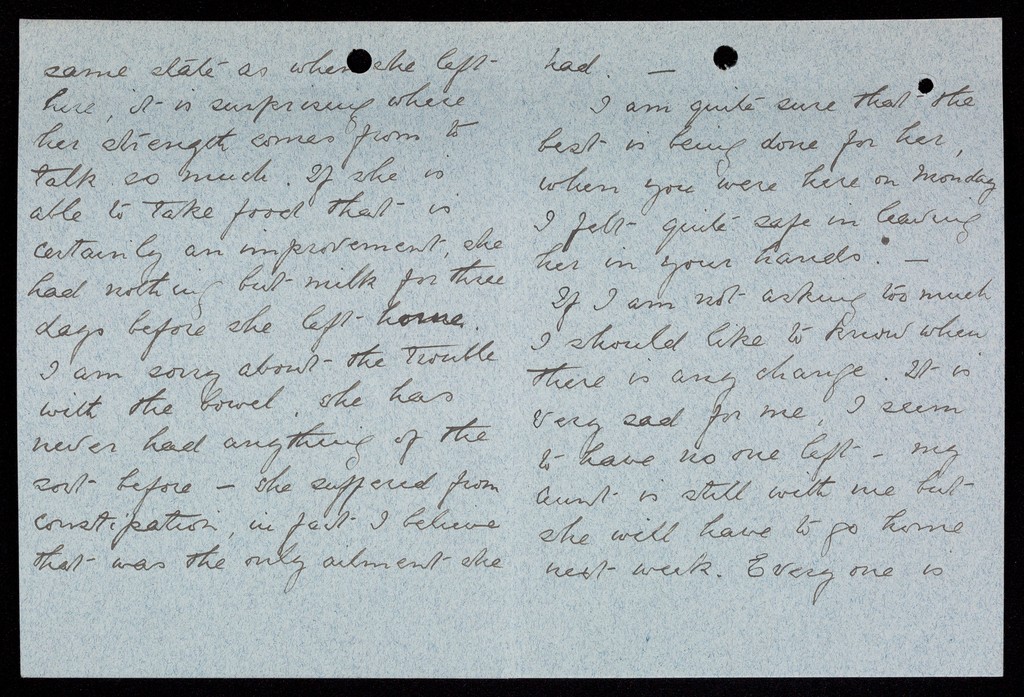 same state as when she left
here, it is surprising where
her strength comes from to
talk so much. If she is
able to take food that is
certainly an improvement, she
had nothing but milk for three
days before she left home.
I am sorry about the trouble
with the bowel. She has
never had anything of the
sort before - she suffered from
constipation, in fact I believe
that was the only ailment she
had. —
I am quite sure that the
best is being done for her,
when you were here on Monday
I felt quite safe in leaving
her in your hands. —
If I am not asking too much
I should like to know when
there is any change. It is
very sad for me, I seem
to have no one left - my
aunt is still with me but
she will have to go home
next week. Every one is